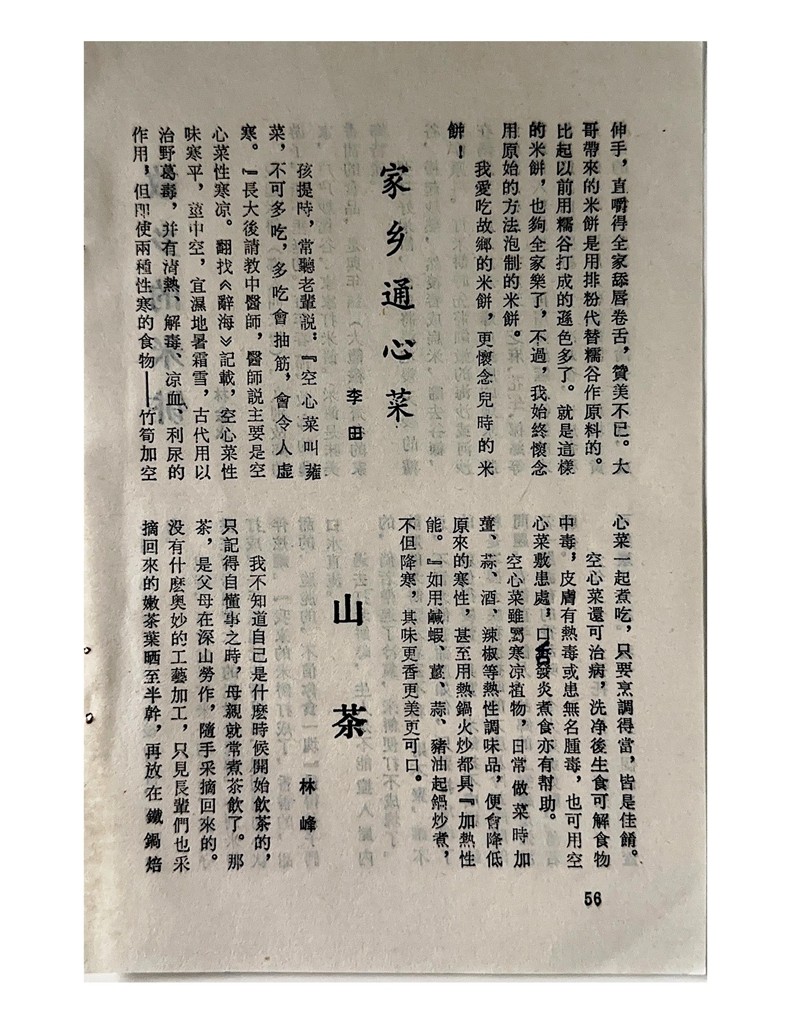 伸手，直嚼得全家舔唇卷舌，贊美不已。大
哥帶來的米餅是用排粉代替糯谷作原料的。
比起以前用糯谷打成的遜色多了。就是這樣
的米餅，也夠全家樂了，不過，我始終懷念
用原始的方法泡制的米餅。
我愛吃故鄉的米餅，更懷念兒時的米
餅！
家乡通心菜
李田
孩提時，常聽老輩説：『空心菜叫蕹
菜，不可多吃，多吃會抽筋，會令人虛
寒。』長大後請教中醫師，醫師説主要是空
心菜性寒凉。翻找《辭海》記載，空心菜性
味寒平，莖中空，宜濕地暑霜雪，古代用以
治野葛毒，并有清熱、解毒、凉血、利尿的
作用，但即使兩種性寒的食物——竹筍加空
心菜一起煮吃，只要烹調得當，皆是佳餚。
空心菜還可治病，洗净後生食可解食物
中毒，皮膚有熱毒或患無名腫毒，也可用空
心菜敷患處，口舌發炎煮食亦有幫助。
空心菜雖屬寒凉植物，日常做菜時加
薑、蒜、酒、辣椒等熱性調味品，便會降低
原來的寒性，甚至用熱鍋火炒都具『加熱性
能。』如用鹹蝦、薑、蒜、豬油起鍋炒煮，
不但降寒，其味更香更美更可口。
山茶
林峰
我不知道自己是什麽時候開始飲茶的，
只記得自懂事之時，母親就常煮茶飲了。那
茶，是父母在深山勞作，隨手采摘回來的。
没有什麽奥妙的工藝加工，只見長輩們也采
摘回來的嫩茶葉晒至半幹，再放在鐵鍋焙
56